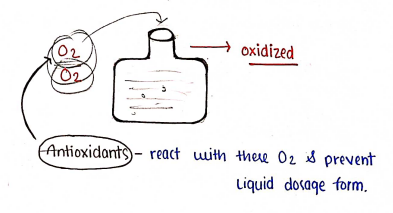 O2
O2
oxidized
Antioxidants - react with there O2 & prevent
Liquid dosage form.